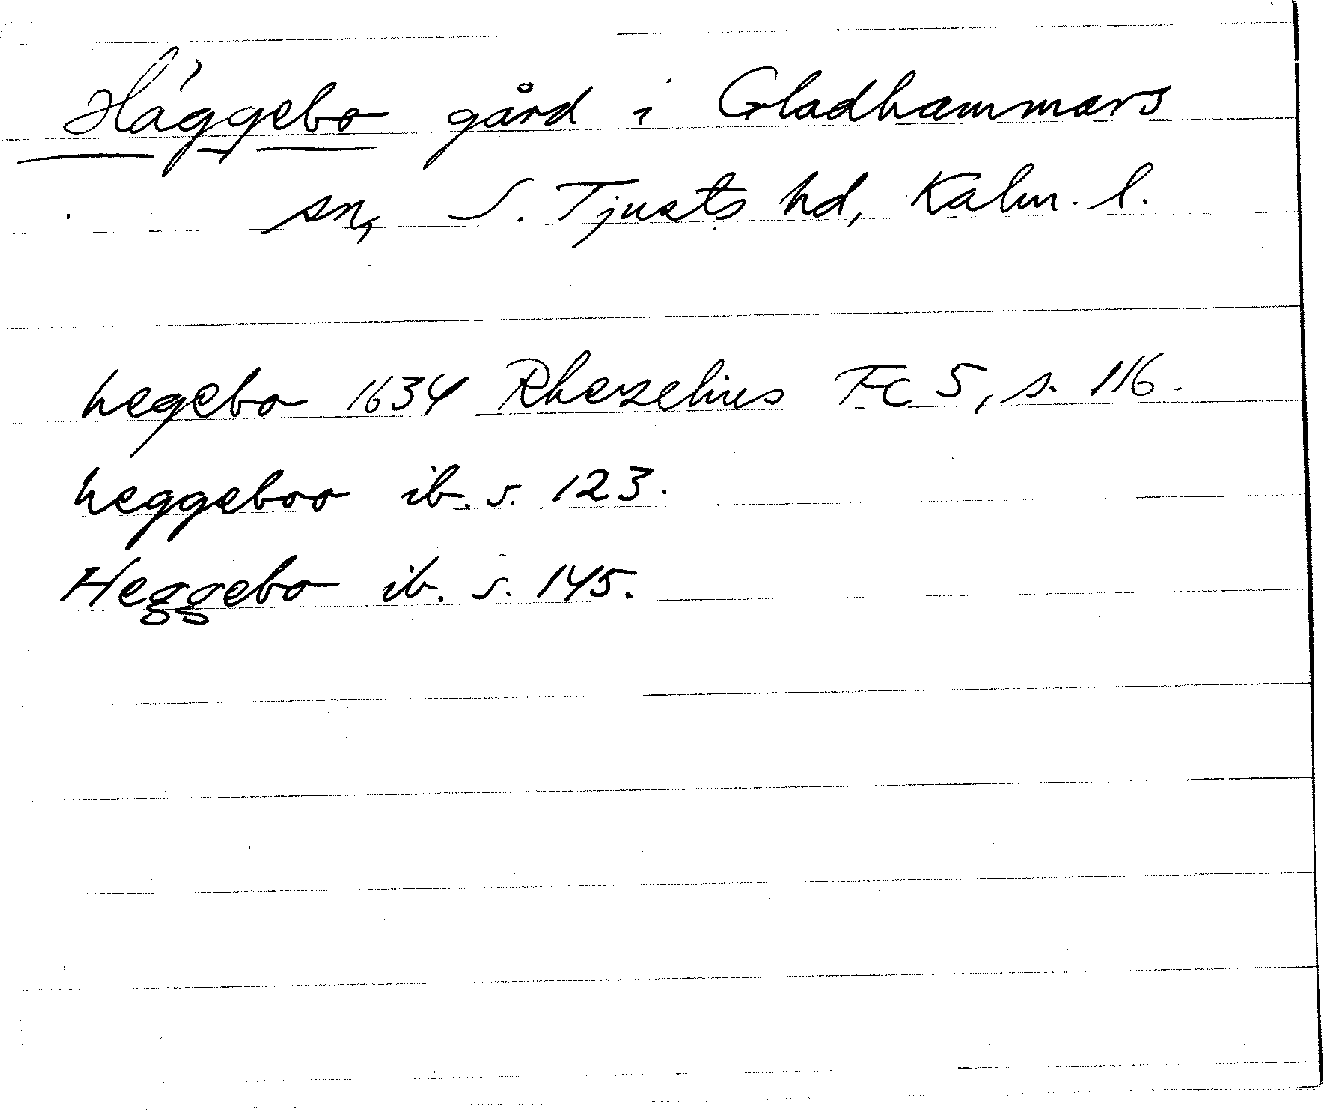 Häggebo gård i Gladhammars
sn, S. Tjusts hd, Kalm. l.
hegebo 1634 Rhezelius Fc 5, s. 116.
heggeboo ib. s. 123.
Heggebo ib. s. 145.